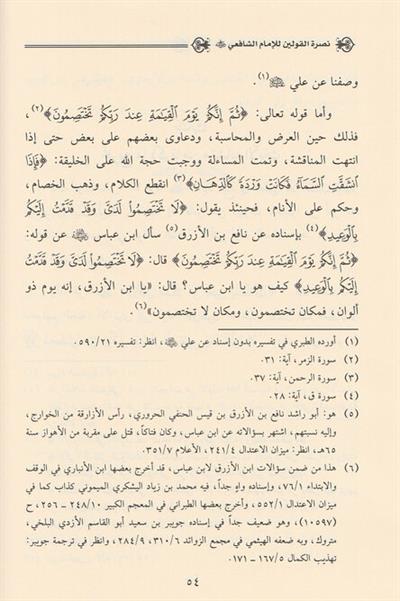 نصرة القولين للإمام الشافعي ﵁
وصفنا عن علي ﵁(١).
وأما قوله تعالى: ﴿ثُمَّ إِنَّكُمْ يَوْمَ ٱلْقِيَٰمَةِ عِندَ رَبِّكُمْ تَخْتَصِمُونَ﴾(٢)،
فذلك حين العرض والمحاسبة، ودعاوى بعضهم على بعض حتى إذا
انتهت المناقشة، وتمت المساءلة ووجبت حجة الله على الخليقة: ﴿فَإِذَا
ٱنشَقَّتِ ٱلسَّمَآءُ فَكَانَتْ وَرْدَةً كَٱلدِّهَانِ﴾(٣) انقطع الكلام، وذهب الخصام،
وحكم على الأنام، فحينئذ يقول: ﴿لَا تَخْتَصِمُوا۟ لَدَىَّ وَقَدْ قَدَّمْتُ إِلَيْكُم
بِٱلْوَعِيدِ﴾(٤) بإسناده عن نافع بن الأزرق(٥) سأل ابن عباس ﵁ عن قوله:
﴿ثُمَّ إِنَّكُمْ يَوْمَ ٱلْقِيَٰمَةِ عِندَ رَبِّكُمْ تَخْتَصِمُونَ﴾ قال: ﴿لَا تَخْتَصِمُوا۟ لَدَىَّ وَقَدْ قَدَّمْتُ
إِلَيْكُم بِٱلْوَعِيدِ﴾ كيف هو يا ابن عباس؟ قال: «يا ابن الأزرق، إنه يوم ذو
ألوان، فمكان تختصمون، ومكان لا تختصمون»(٦).
(١) أورده الطبري في تفسيره بدون إسناد عن علي ﵁، انظر: تفسيره ٥٩٠/٢١.
(٢) سورة الزمر، آية: ٣١.
(٣) سورة الرحمن، آية: ٣٧.
(٤) سورة ق، آية: ٢٨.
(٥) هو: أبو راشد نافع بن الأزرق بن قيس الحنفي الحروري، رأس الأزارقة من الخوارج،
وإليه نسبتهم، اشتهر بسؤالاته عن ابن عباس، وكان فتاكاً، قتل على مقربة من الأهواز سنة
٦٥هـ، انظر: ميزان الاعتدال ٢٤١/٤، الأعلام ٣٥١/٧.
(٦) هذا من ضمن سؤالات ابن الأزرق لابن عباس، قد أخرج بعضها ابن الأنباري في الوقف
والابتداء ٧٦/١، وإسناده واهٍ جداً، فيه محمد بن زياد اليشكري الميموني كذاب كما في
ميزان الاعتدال ٥٥٢/١، وأخرج بعضها الطبراني في المعجم الكبير ٢٤٨/١٠ – ٢٥٦، ح
(١٠٥٩٧)، وهو ضعيف جداً في إسناده جويبر بن سعيد أبو القاسم الأزدي البلخي،
متروك، وبه ضعفه الهيثمي في مجمع الزوائد ٣١٠/٦، ٢٨٤/٩، وانظر في ترجمة جويبر:
تهذيب الكمال ١٦٧/٥ – ١٧١.
٥٤